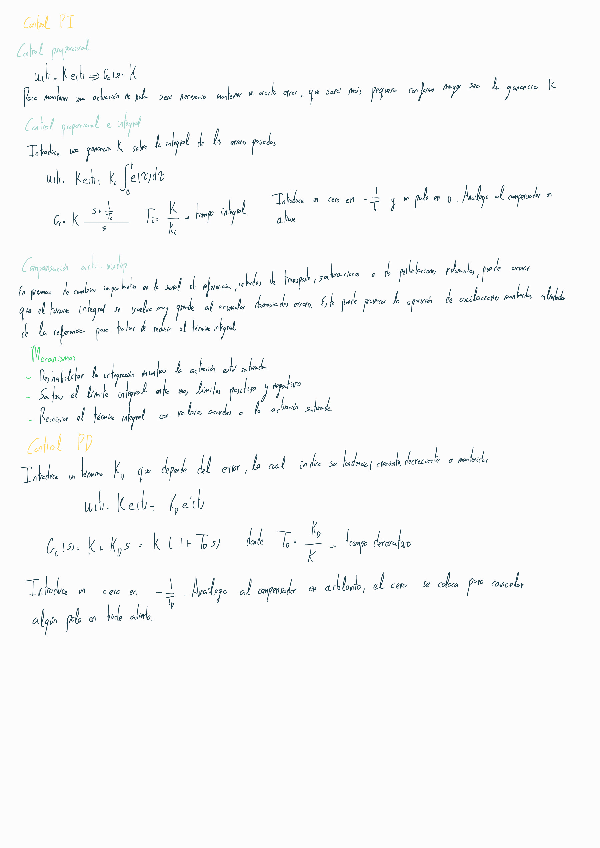 Control PI
Control proporcional
u(t) = K e(t) ⇒ Gc(s) = K
Para mantener una actuación no nula será necesario mantener un cierto error, que será más pequeño conforme mayor sea la ganancia K
Control proporcional e integral
Introduce una ganancia K sobre la integral de los errores pasados
u(t) = K e(t) + K_i ∫_0^t e(τ)dτ
G_c = K (s + 1/T_i)/s T_i = K/K_i → tiempo integral Introduce un cero en -1/T y un polo en 0. Análogo al compensador en
atraso
Compensación anti-windup
En presencia de cambios importantes en la señal de referencia, retardos de transporte, saturaciones o de perturbaciones, puede ocurrir
que el término integral se vuelva muy grande al acumular demasiados errores. Esto puede generar la aparición de oscilaciones mantenidas alrededor
de la referencia para tratar de reducir el término integral
Mecanismos
- Deshabilitar la integración mientras la actuación esté saturada
- Saturar el límite integral entre unos límites positivos y negativos
- Reiniciar el término integral con valores acordes a la actuación saturada
Control PD
Introduce un término K_D que depende del error, la cual indica su tendencia, creciente, decreciente o mantenida
u(t) = K e(t) + K_D e'(t)
G_c(s) = K + K_D s = K (1 + T_D s) donde T_D = K_D/K → tiempo derivativo
Introduce un cero en -1/T_D. Análogo al compensador en adelanto, el cero se coloca para cancelar
algún polo en bucle abierto.